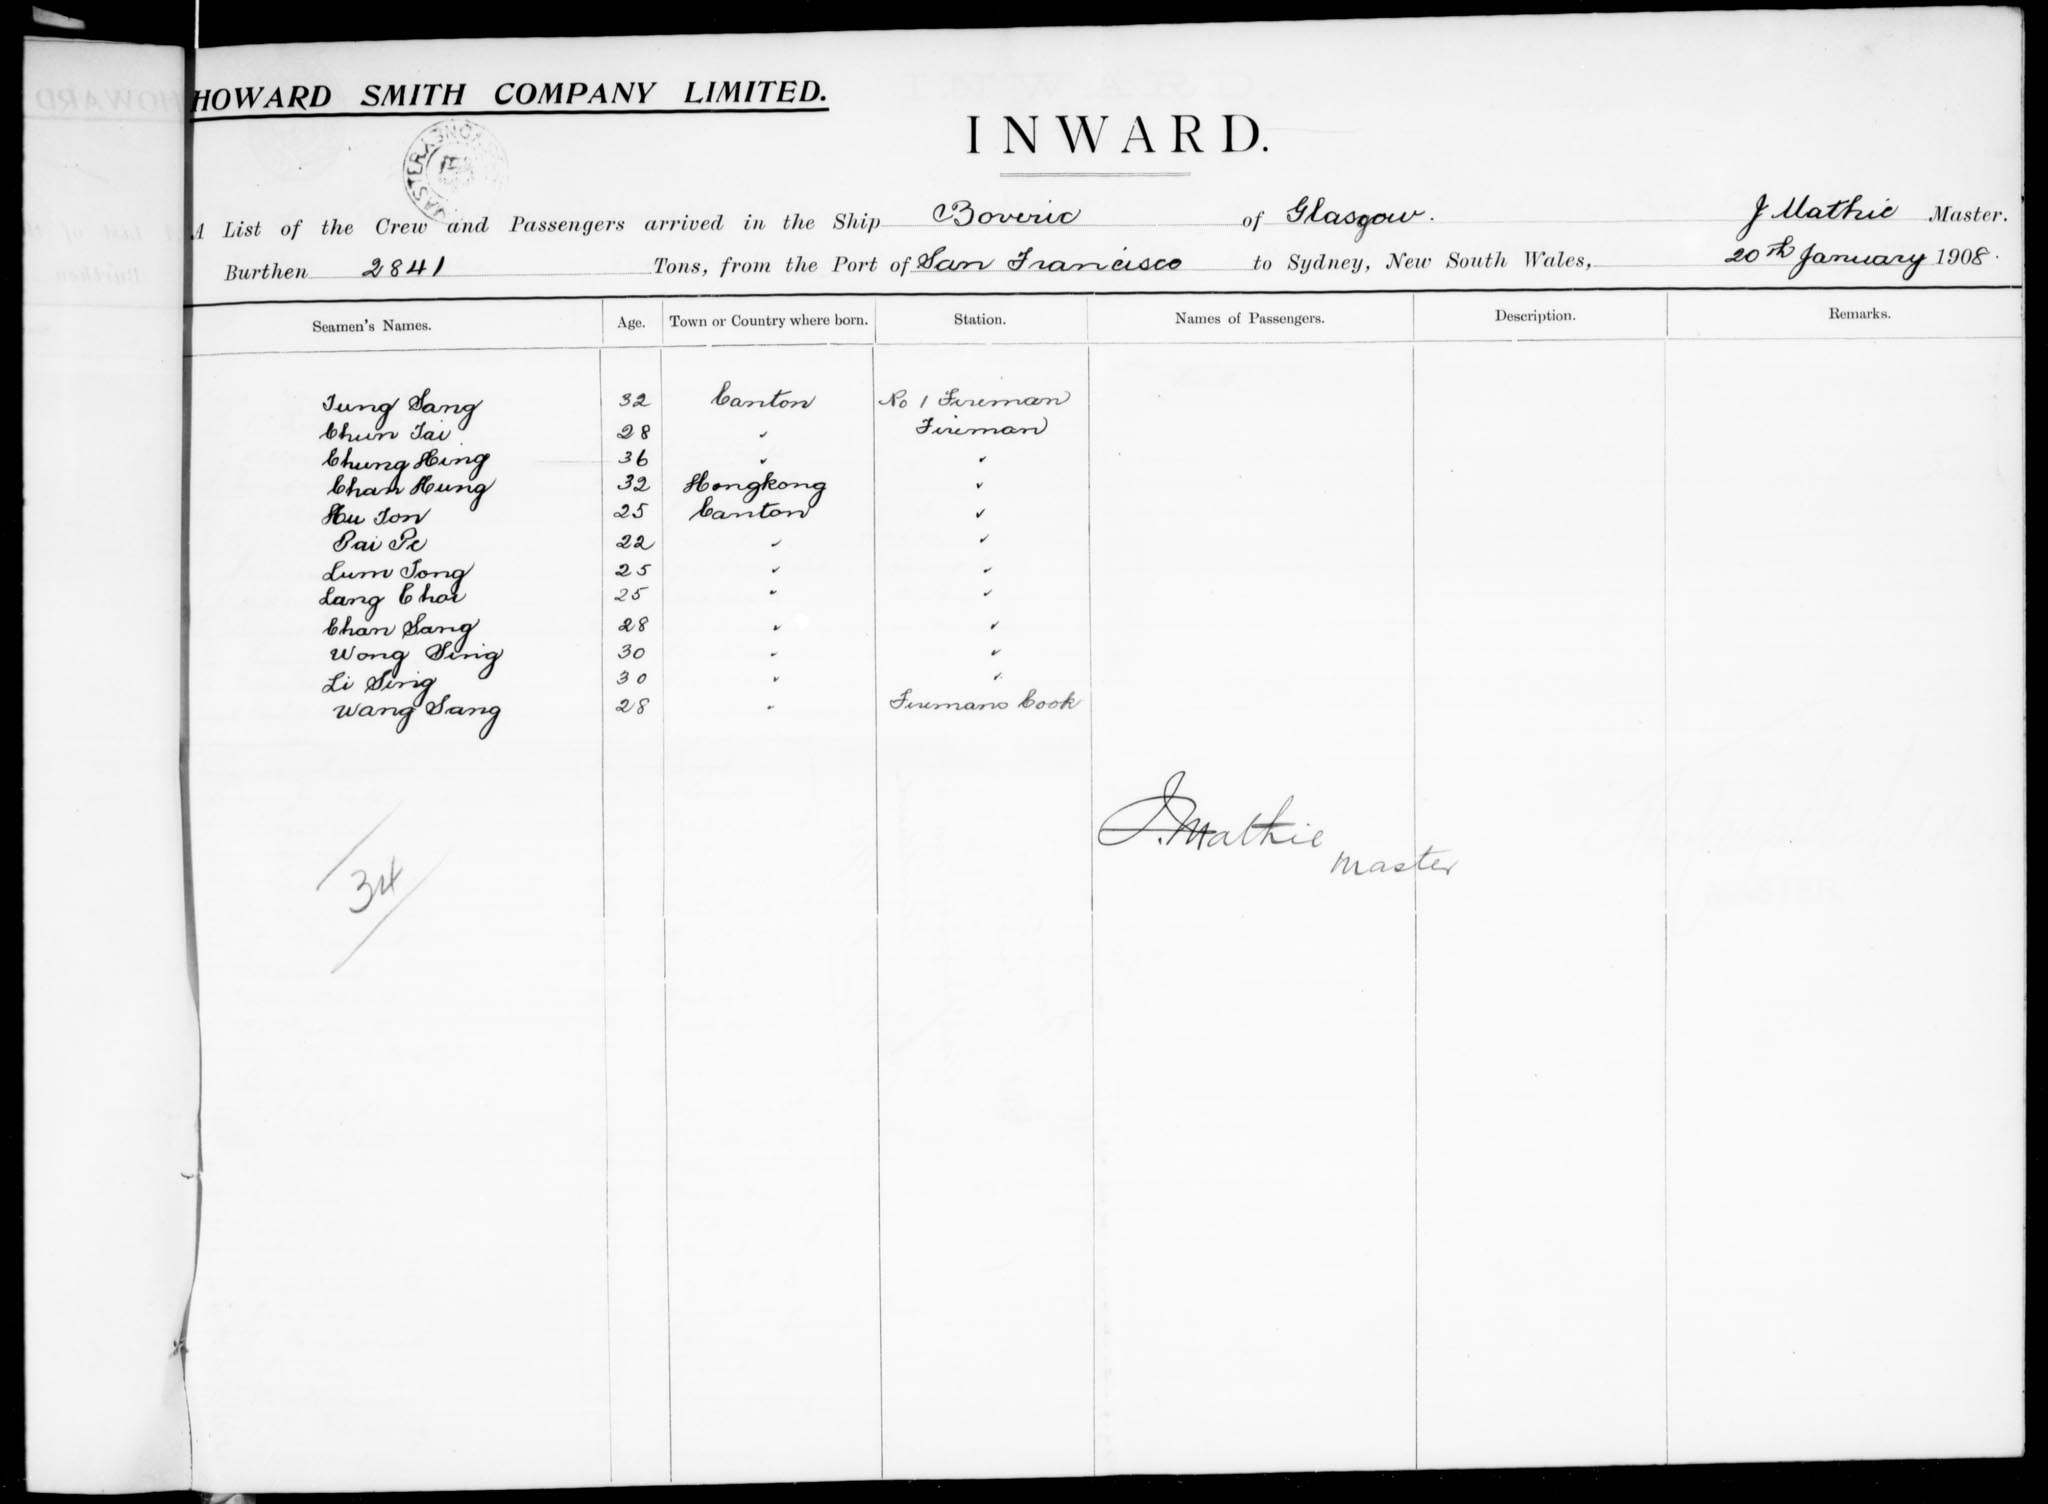 HOWARD SMITH COMPANY LIMITED.
INWARD.
A List of the Crew and Passengers arrived in the Ship Boveric of Glasgow. J Mathie Master.
Burthen 2841 Tons, from the Port of San Francisco to Sydney, New South Wales, 20th January 1908.
Seamen's Names. Age. Town or Country where born. Station. Names of Passengers. Description. Remarks.
Tung Sang 32 Canton No 1 Fireman
Chun Tai 28 " Fireman
Chung Hing 36 " "
Chan Hung 32 Hongkong "
Hu Ton 25 Canton "
Pai Pe 22 " "
Lum Tong 25 " "
Lang Choi 25 " "
Chan Sang 28 " "
Wong Sing 30 " "
Li Sing 30 " "
Wang Sang 28 " Firemans Cook
J. Mathie
Master
34